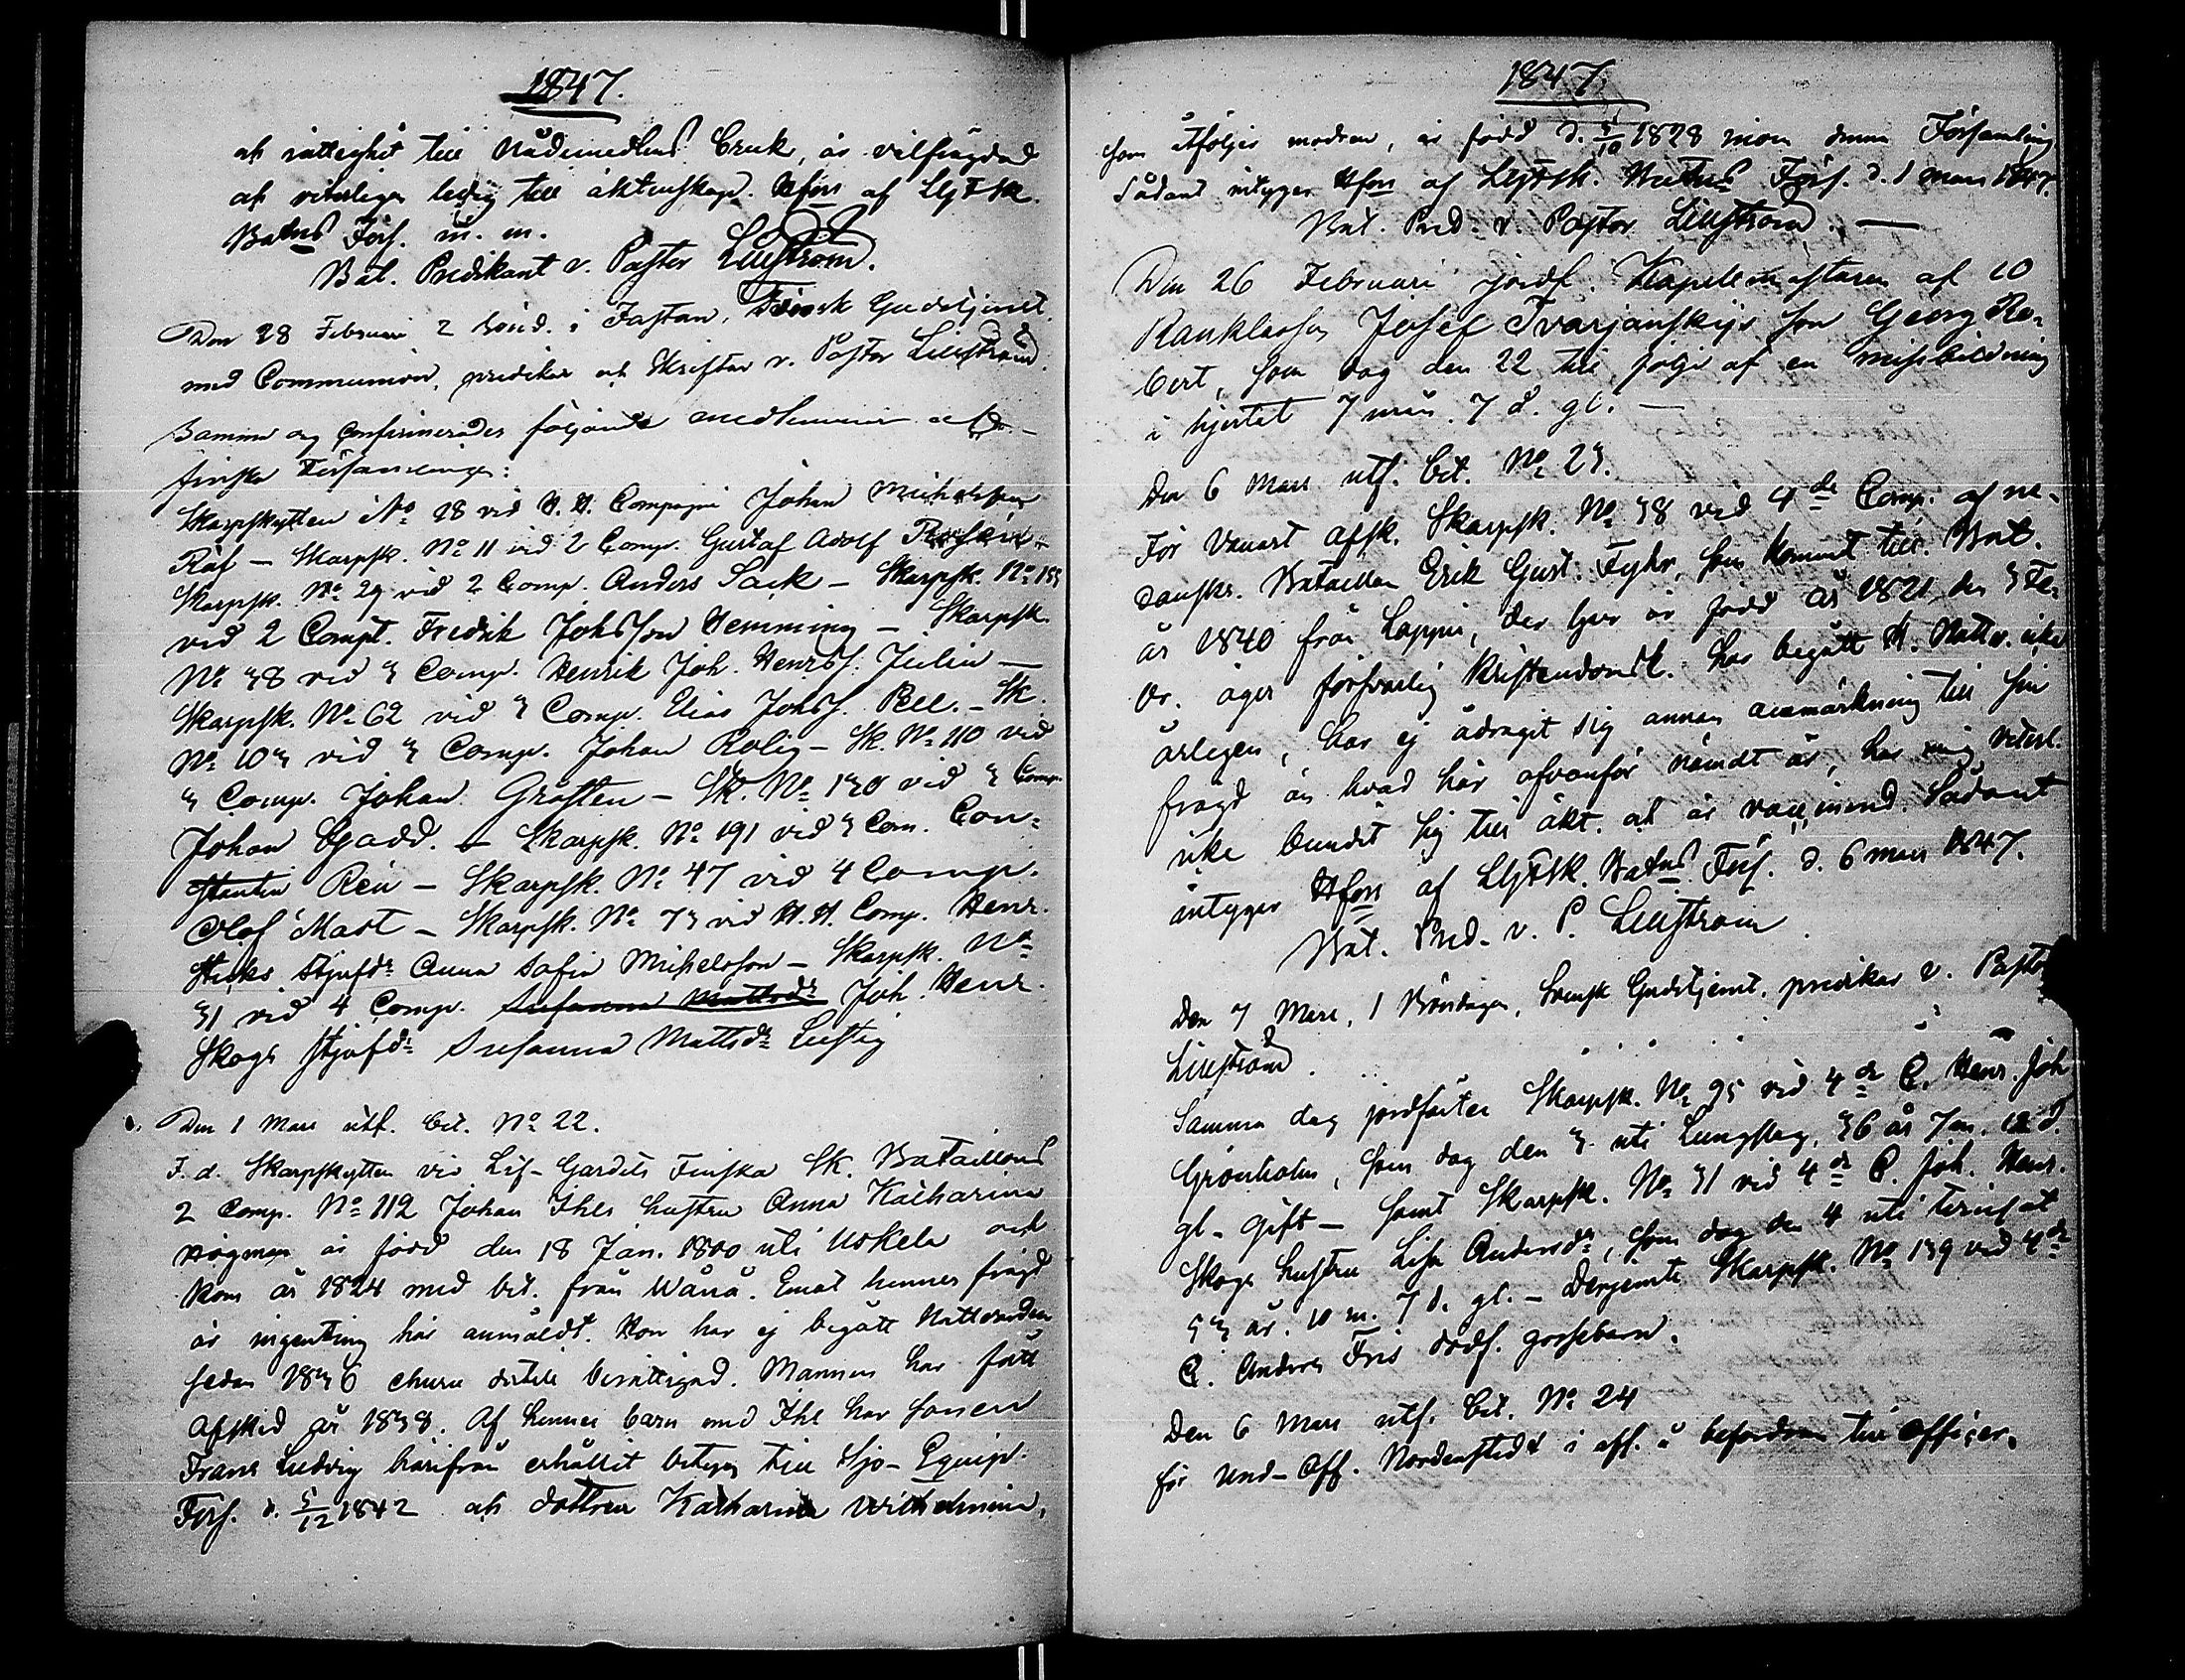 1847.
och rättighet till Nådemedlens bruk, är välfrägdad
och veterligen ledig till äktenskap. Hfors af LGFSk.
Batns Förs. m. m.
Bat. Predikant v. Pastor Lillström.
Den 28 Februari 2 Sönd. i Fastan, Finsk Gudstjenst
med Communion, predikar och skriftar v. Pastor Lillström.
Samma dag Confirmerades följande medlemmar af
finska Församlingen:
Skarpskytten No 28 vid H. H. Compagni Johan Michelsson
Räf – Skarpsk. No 11 vid 2 Comp. Gustaf Adolf
Skarpsk. No 29 vid 2 Comp. Anders Sack – Skarpsk. No 153
vid 2 Compt. Fredrik Johsson Hemming – Skarpsk.
No 38 vid 3 Comp. Henrik Joh. Henrss. Julin –
Skarpsk. No 62 vid 3 Comp. Elias Johss. Pell. – Sk.
No 103 vid 3 Comp. Johan Rolig – Sk. No 110 vid
3 Comp. Johan Gråsten – Sk. No 130 vid 3 Comp.
Johan Gadd. – Skarpsk. No 191 vid 3 Com. Con-
stantin Ren – Skarpsk. No 47 vid 4 Comp.
Olof Mast – Skarpsk. No 73 vid H. H. Comp. Henr.
Stjufdr Anna Sofia Michelsson – Skarpsk. No
31 vid 4 Comp. Susanna Mattsdr Joh. Henr.
Skogs Stjufdr Susanna Mattsdr Lustig
Den 1 Mars utf. bet. No 22.
F. d. Skarpskytten vid Lif-Gardets Finska Sk. Bataillons
2 Comp. No 112 Johan Ihls hustru Anna Katharina
Högman är född den 18 Jan. 1800 uti Uskela och
kom år 1824 med bet. från Wånå. Emot hennes frägd
är ingenting här anmäldt. Hon har ej begått Nattvarden
sedan 1836 ehuru dertill berättigad. Mannen har fått
afsked år 1838. Af hennes barn med Ihl har sonen
Frans Ludvig härifrån erhållit betyg till Sjö-Equip.
Förs. d. 5/12 1842 och dottren Katharina Wilhelmina,
1847.
som åtföljer modren, är född d. 5/10 1828 inom denna Församling
Sådant intygar Hfors af LGFSk. Batns Förs. d. 1 mars 1847.
Bat. Pred. v. Pastor Lillström. –
Den 26 Februari jordf. Kapellmästaren af 10
Ranklassen Josef Tvarjanskijs son Georg Ro-
bert, som dog den 22 till följe af en missbildning
i hjertat 7 mån. 7 d. gl. –
Den 6 Mars utf. bet. No 23.
För Vanart afsk. Skarpsk. No 38 vid 4de Comp. af ne-
danskr. Bataillon Erik Gust. Fyhr, som kommit till Bat.
år 1840 från Loppis, der han är född år 1821 den 3 Fe-
br. äger försvarlig kristendomsk. har begått H. Nattv. icke
årligen, har ej ådragit sig annan anmärkning till sin
frägd än hvad här ofvanför nämdt är, har mig veterl.
icke bundit sig till äkt. och är vaccinerad. Sådant
intygar Hfors af LGFSk. Batns Förs. d. 6 mars 1847.
Bat. Pred. v. P. Lillström.
Den 7 Mars, 1 Böndagen, Svensk Gudstjenst. predikar v. Pastor
Lillström.
Samma dag jordfästes Skarpsk. No 95 vid 4de C. Henr. Joh.
Grönholm, som dog den 3. uti Lungslag, 36 år 7 m. 12 d.
gl. gift – samt Skarpsk. No 31 vid 4de C. Joh. Henr.
Skogs hustru Lisa Andersdr, som dog den 4 uti
53 år. 10 m. 7 d. gl. – Derjemte Skarpsk. No 139 vid 4de
C. Anders Fris dödf. gossebarn.
Den 6 Mars utf. bet. No 24
för Und-Off. Nordenstedt i afs. å befordran till officer.